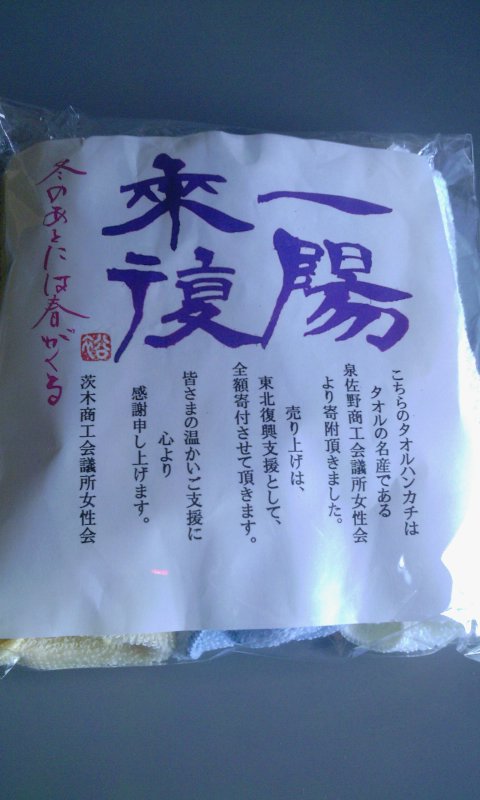 一陽
來復
冬のあとには春がくる
こちらのタオルハンカチは
タオルの名産である
泉佐野商工会議所女性会
より寄附頂きました。
売り上げは、
東北復興支援として、
全額寄付させて頂きます。
皆さまの温かいご支援に
心より
感謝申し上げます。
茨木商工会議所女性会